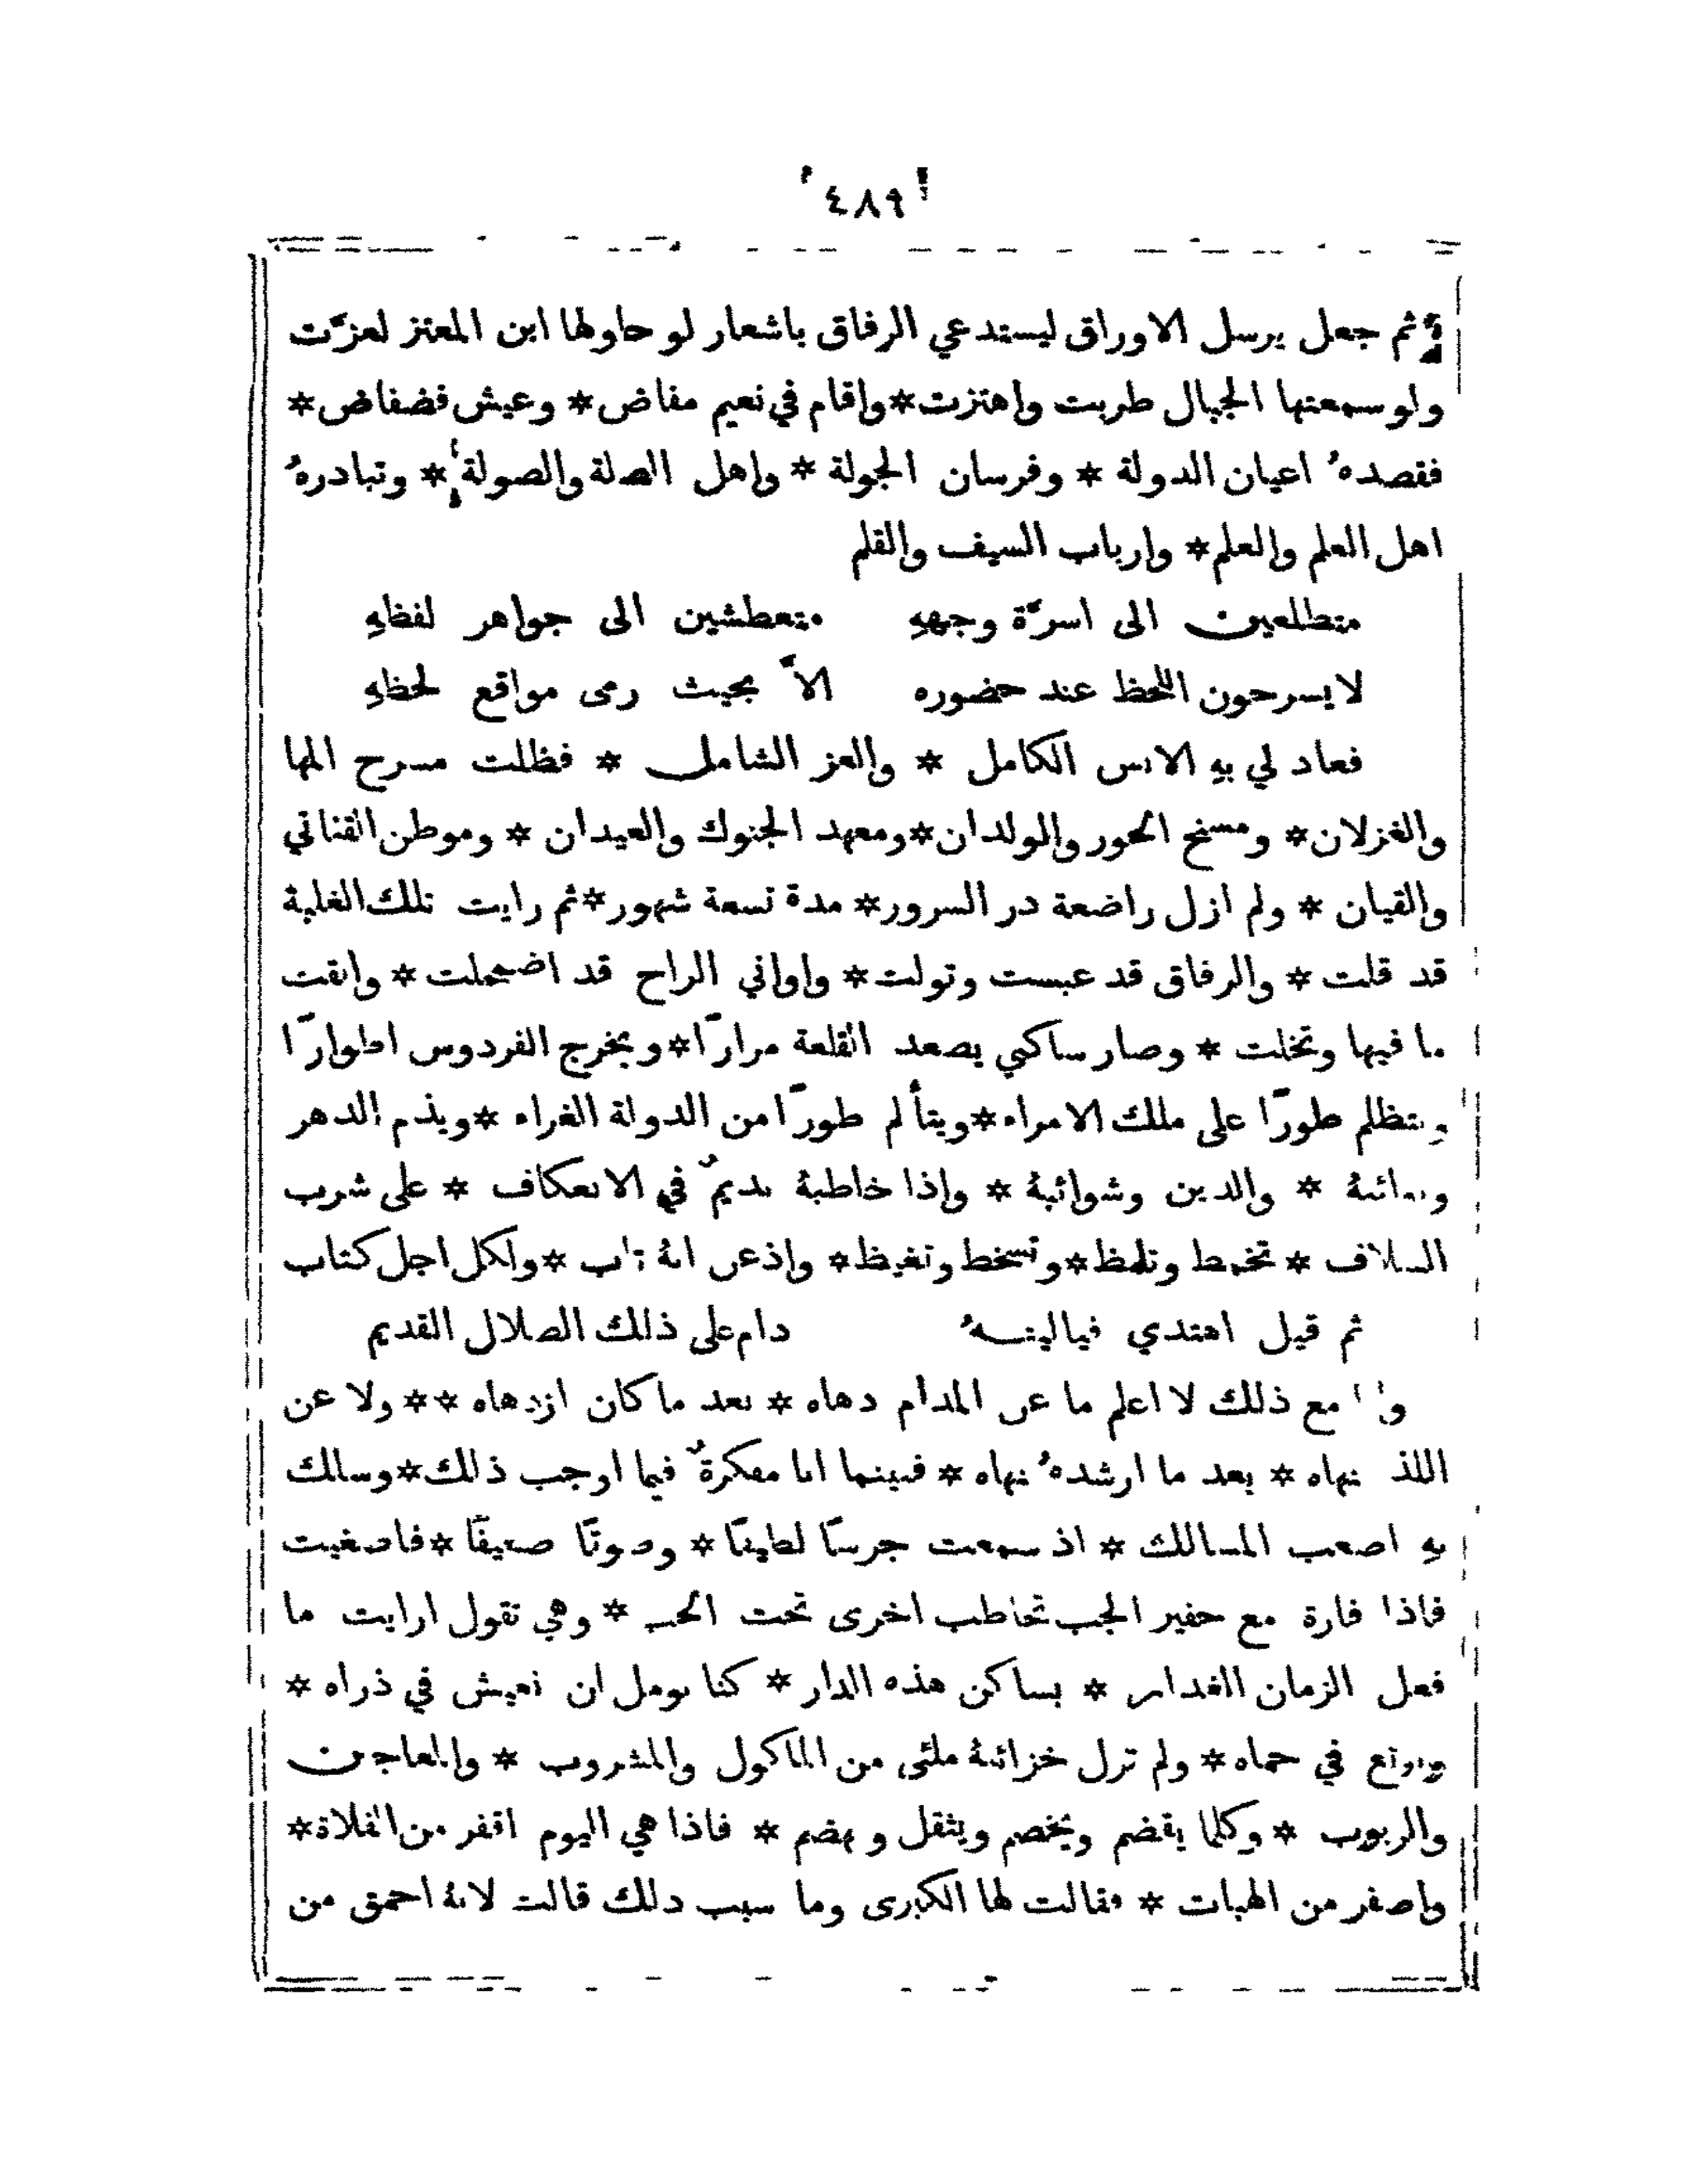 ٤٨٩
ثم جعل يرسل الاوراق ليستدعي الرفاق باشعار لو حاولها ابن المعتز لعزّت
ولو سمعتها الجبال طربت واهتزت* واقام في نعيم مفاض* وعيش فضفاض*
فقصدهُ اعيان الدولة * وفرسان الجولة * واهل الصلة والصولة * وتبادرهُ
اهل العلم والعلم* وارباب السيف والقلم
متطلعين الى اسرّة وجههِ متعطشين الى جواهر لفظهِ
لا يسرحون اللحظ عند حضوره الاّ بحيث رمى مواقع لحظهِ
فعاد لي بهِ الانس الكامل * والعز الشامل * فظلت مسرح المها
والغزلان* ومسنح الحور والولدان* ومعهد الجنوك والعيدان * وموطن القناني
والقيان * ولم ازل راضعة در السرور* مدة تسعة شهور* ثم رايت تلك الغلبة
قد قلت * والرفاق قد عبست وتولت* واواني الراح قد اضمحلت * والقت
ما فيها وتخلت * وصار ساكني يصعد القلعة مرارًا* ويخرج الفردوس اطوارًا
ويتظلم طورًا على ملك الامراء* ويتألم طورًا من الدولة الغراء * ويذم الدهر
ونوائبهُ * والدين وشوائبهُ * واذا خاطبهُ نديمٌ في الانعكاف * على شرب
السلاف * تخمط وتلمظ* وتسخط وتغيظ* واذعى انهُ تاب * ولكل اجل كتاب
ثم قيل اهتدي فياليتــهُ دام على ذلك الضلال القديم
وانا مع ذلك لا اعلم ما عن المدام دهاه * بعد ما كان ازدهاه ** ولا عن
اللذ نهاه * بعد ما ارشدهُ نهاه * فبينما انا مفكرةٌ فيما اوجب ذلك* وسالك
بهِ اصعب المسالك * اذ سمعت جرسًا لطيفًا * وصوتًا ضعيفًا * فاصغيت
فاذا فارة مع حفير الجب تخاطب اخرى تحت الحب * وهي تقول ارايت ما
فعل الزمان الغدار * بساكن هذه الدار * كنا نومل ان نعيش في ذراه *
ونرتع في حماه* ولم تزل خزائنهُ ملئى من الماكول والمشروب * والمعاجين
والربوب * وكلما يقضم ويخضم ويثقل ويهضم * فاذا هي اليوم اقفر من الفلاة*
واصفر من الهبات * فقالت لها الكبرى وما سبب ذلك قالت لانهُ احمق من